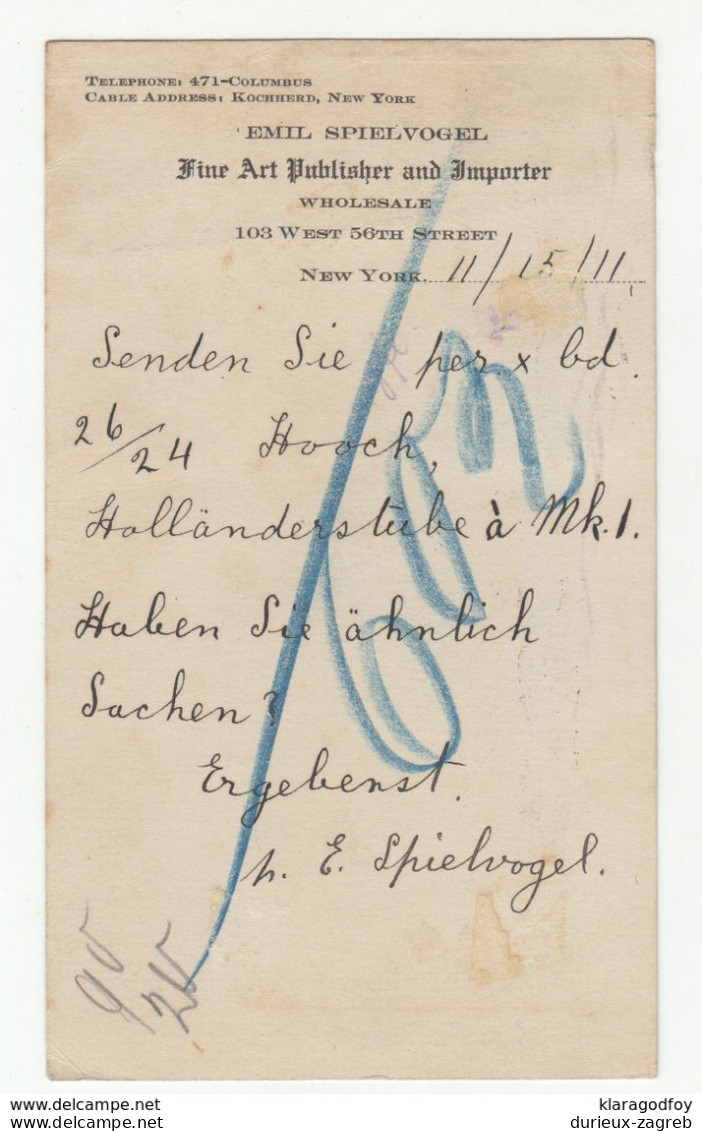 TELEPHONE: 471-COLUMBUS
CABLE ADDRESS: KOCHHERD, NEW YORK
EMIL SPIELVOGEL
Fine Art Publisher and Importer
WHOLESALE
103 WEST 56TH STREET
NEW YORK, 11/15/11
Senden Sie per x bd.
26/24 Hooch,
Holländerstube à Mk. 1.
Haben Sie ähnlich
Sachen?
Ergebenst.
p. E. Spielvogel.
klaragodfoy
durieux-zagreb